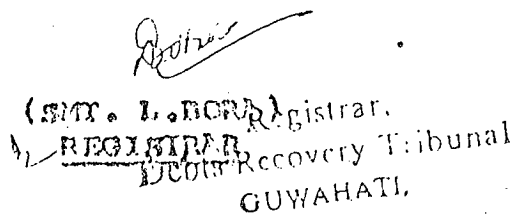 (SMT. L. BORA)
REGISTRAR
Registrar,
Debts Recovery Tribunal
GUWAHATI.